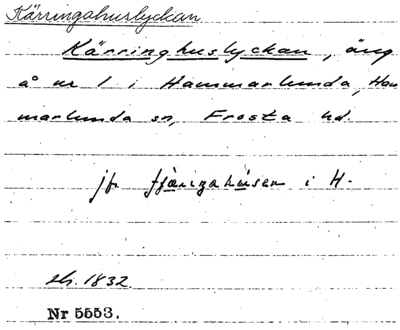 Kärringahuslyckan
Kärringhuslyckan, äng
å nr 1 i Hammarlunda, Ham
marlunda sn, Frosta hd.
jfr i H.
1832.
Nr 5553.